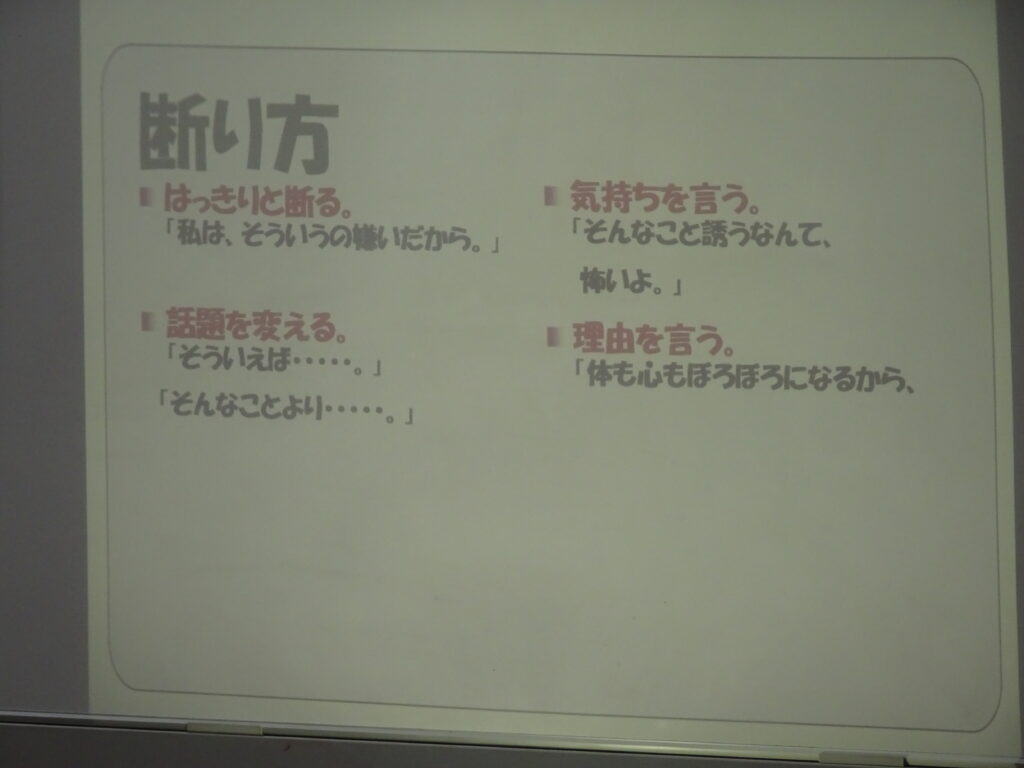 断り方
はっきりと断る。
「私は、そういうの嫌いだから。」
話題を変える。
「そういえば・・・・・。」
「そんなことより・・・・・。」
気持ちを言う。
「そんなこと誘うなんて、
怖いよ。」
理由を言う。
「体も心もぼろぼろになるから、